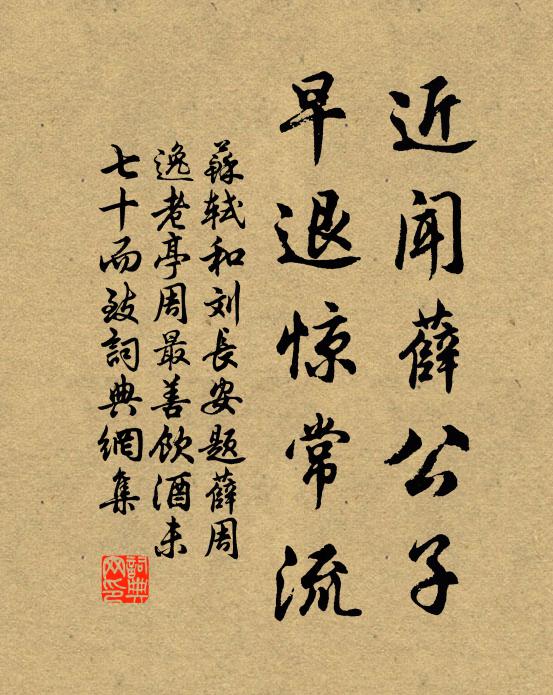 近闻薛公子
早退惊常流
蘇轼和刘長安题薛周
逸老亭周最善飲酒未
七十而致詞典網集
詞典网印